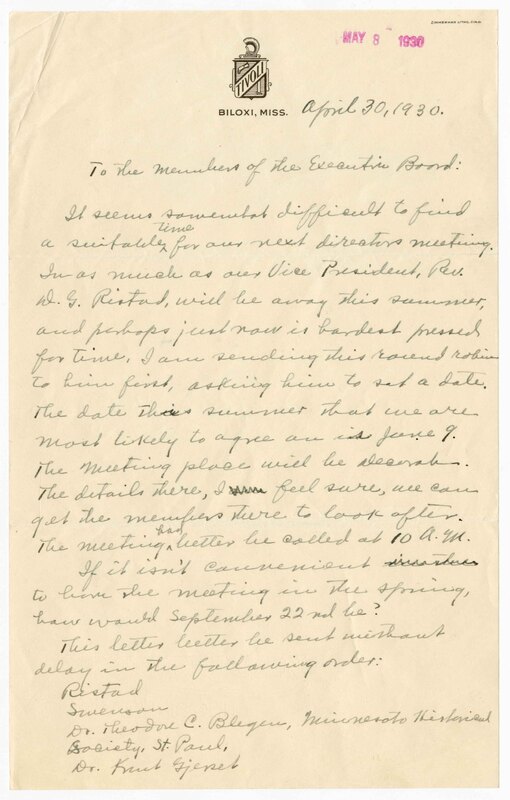 MAY 8 1930
TIVOLI
BILOXI, MISS.
April 30, 1930.
To the Members of the Executiv Board:
It seems somewhat difficult to find
a suitable time for our next directors meeting.
In as much as our Vice President, Rev.
D. G. Ristad, will be away this summer,
and perhaps just now is hardest pressed
for time, I am sending this round robin
to him first, asking him to set a date.
The date this summer that we are
most likely to agree on is June 9.
The Meeting place will be Decorah.
The details there, I feel sure, we can
get the members there to look after.
The meeting had better be called at 10 A.M.
If it isn't convenient
to have the meeting in the spring,
how would September 22nd be?
This letter better be sent without
delay in the following order:
Ristad
Swenson
Dr. Theodore C. Blegen, Minnesota Historical
Society, St. Paul,
Dr. Knut Gjerset